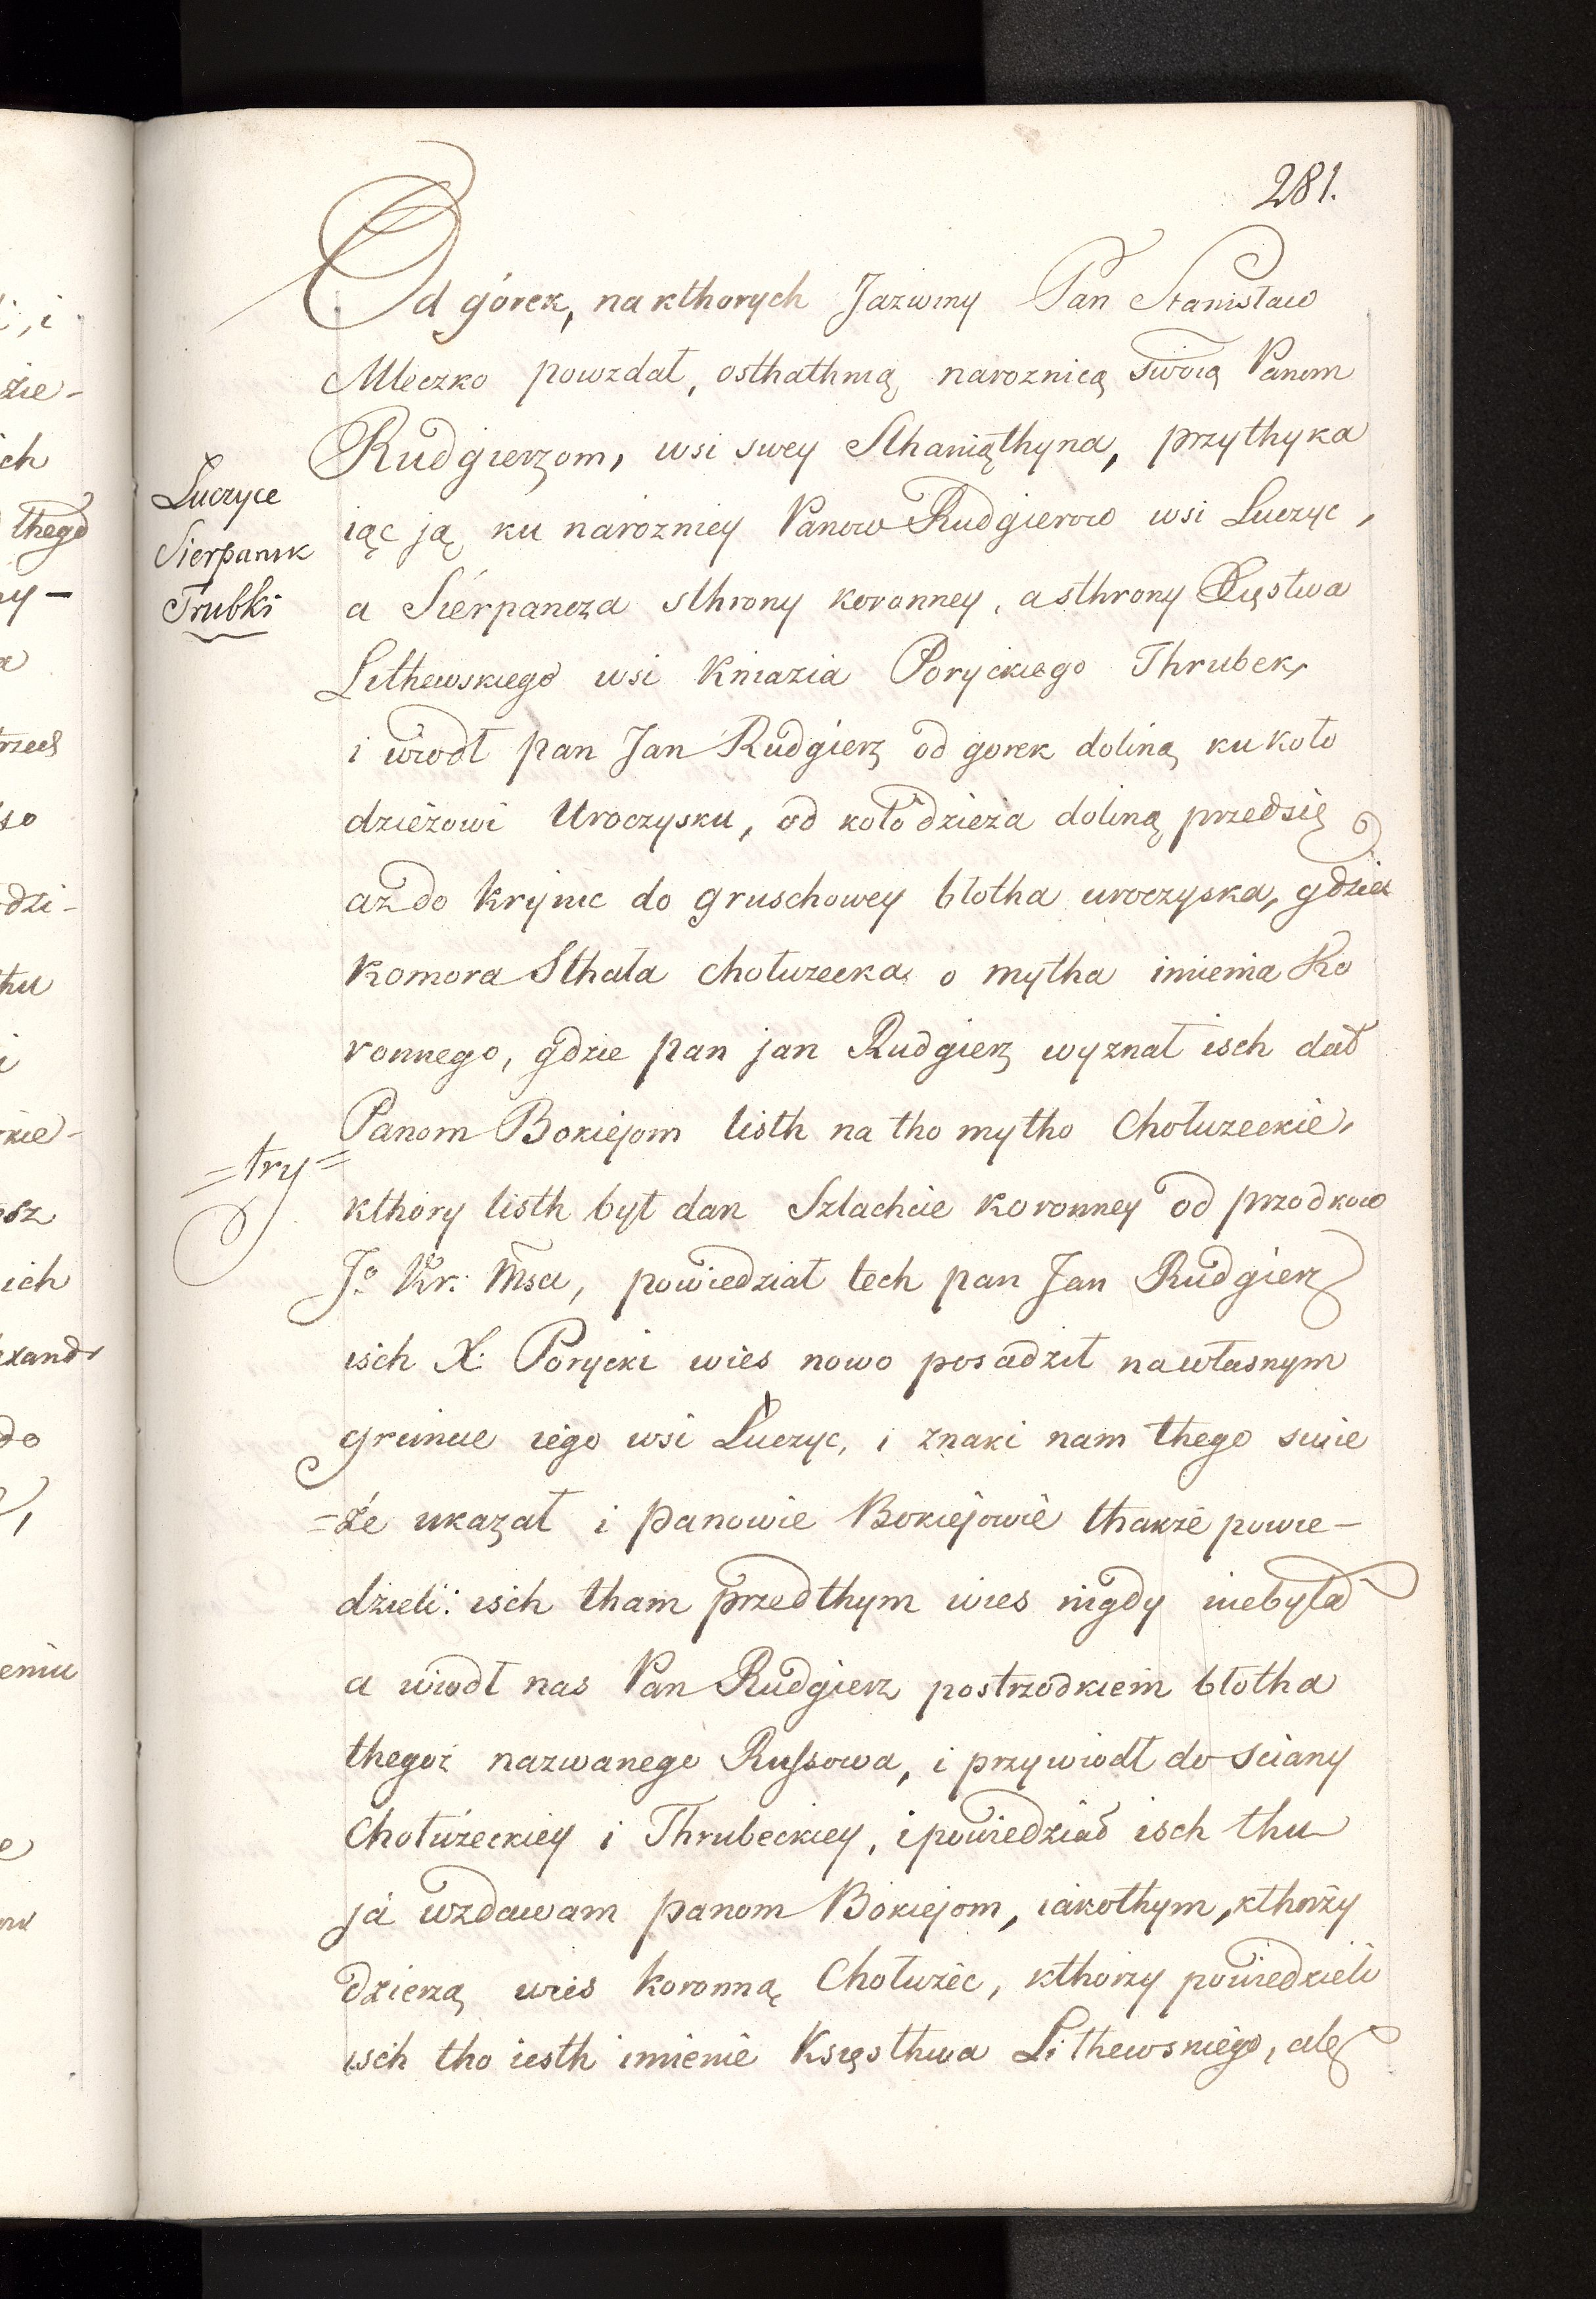 281.
Od górek, na kthorych Jazwiny Pan Stanisław
Mleczko powzdał, osthathnią naroznicą swoią Panom
Rudgierzom, wsi swey Sthaniąthyna, przythyka
iąc ją ku narozniey Panow Rudgierow wsi Luczyc,
a Sierpancza sthrony koronney, a sthrony Xięstwa
Lithewskiego wsi Kniazia Poryckiego Thrubek,
i wiodł pan Jan Rudgierz od gorek doliną ku koło
dzieżowi Uroczysku, od kołodzieza doliną przedsię
aż do krynic do gruschowey błotha uroczyska, gdzie
Komora Sthała chołuzecka o mytha imienia Ko
ronnego, gdzie pan jan Rudgierz wyznał isch dał
Panom Bokiejom listh na tho mytho Chołuzeckie,
kthory listh był dan Szlachcie koronney od przodkow
Jo Kr: Msci, powiedział tech pan Jan Rudgierz
isch X: Porycki wies nowo posadził na własnym
gruncie iego wsi Luczyc, i znaki nam thego swie
=że ukazał i panowie Bokiejowie thakże powie-
dzieli: isch tham przedthym wies nigdy niebyła
a wiodł nas Pan Rudgierz postrzodkiem błotha
thegoż nazwanego Russowa, i przywiodł do sciany
Chołuzeckiey i Thrubeckiey, i powiedział isch thu
ja wzdawam panom Bokiejom, iakothym, kthorży
dzierzą wies koronną Chołużec, kthorzy powiedzieli
isch tho iesth imienie Księsthwa Lithewskiego, ale
Luczyce
Sierpanik
Trubki
=try=